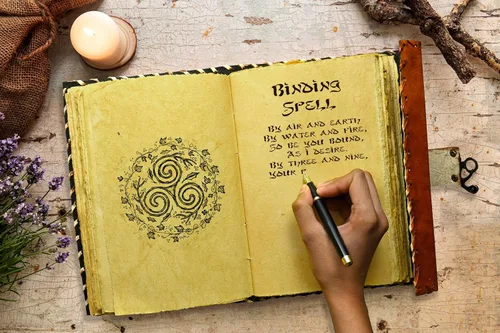 Binding
Spell
By air and earth
By water and fire,
So be you bound,
As I desire.
By three and nine,
your